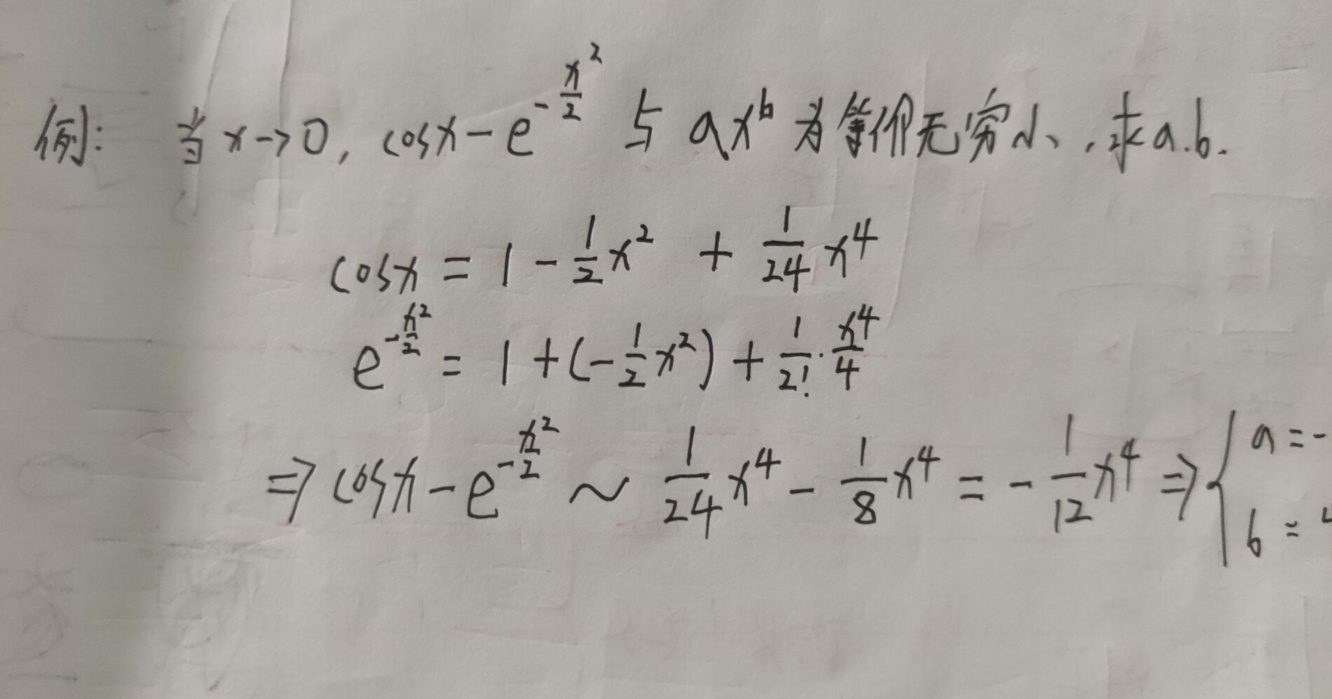 例: 当 x→0, cosx - e^{-\frac{x^2}{2}} 与 ax^b 为等价无穷小, 求a.b.
cosx = 1 - \frac{1}{2}x^2 + \frac{1}{24}x^4
e^{-\frac{x^2}{2}} = 1 + (-\frac{1}{2}x^2) + \frac{1}{2!}·\frac{x^4}{4}
⇒ cosx - e^{-\frac{x^2}{2}} ~ \frac{1}{24}x^4 - \frac{1}{8}x^4 = -\frac{1}{12}x^4 ⇒ { a = -
b =